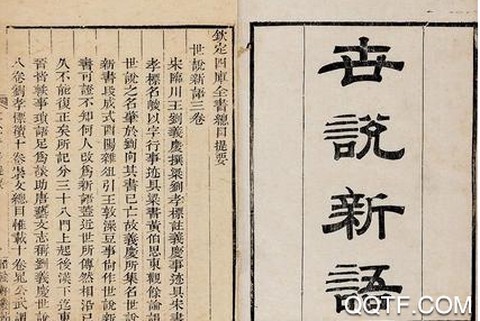 世說新語
欽定四庫全書總目提要
世說新語三卷
宋臨川王劉義慶撰梁劉孝標註義慶事迹具宋書
孝標名峻以字行事迹具梁書黃伯思東觀餘論謂
世說之名肇於劉向其書已亡故義慶所集名世
新書段成式酉陽雜俎引王敦澡豆事尚作世說新
書可證不知何人改爲新語蓋近世所傳然相沿已
久不能復正矣所記分三十八門上起後漢下迄東
晉皆軼事瑣語足爲談助唐藝文志稱劉義慶世說
八卷劉孝標續十卷崇文總目惟載十卷晁公武讀
QQTF.COM